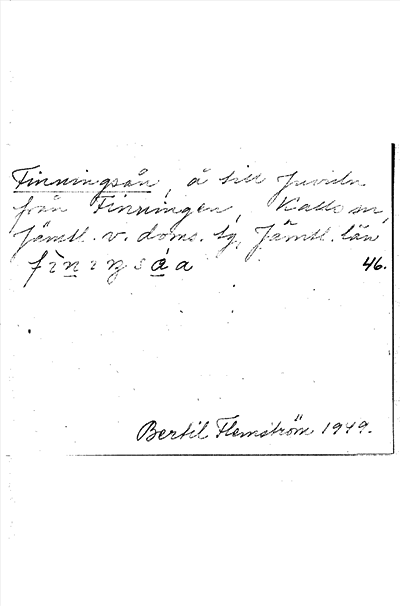 Finningsån, å till Juveln
från Finningen, Kalls sn,
Jämtl. v. doms. tg, Jämtl. län
46.
Bertil Flemström 1949.